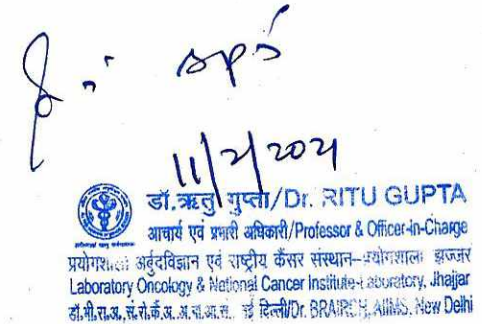 11/2/2021
डॉ.ऋतु गुप्ता/Dr. RITU GUPTA
आचार्य एवं प्रभारी अधिकारी/Professor & Officer-in-Charge
प्रयोगशाला अर्बुदविज्ञान एवं राष्ट्रीय कैंसर संस्थान-प्रयोगशाला झज्जर
Laboratory Oncology & National Cancer Institute-Laboratory, Jhajjar
नई दिल्ली/Dr. BRAIRCH, AIIMS, New Delhi